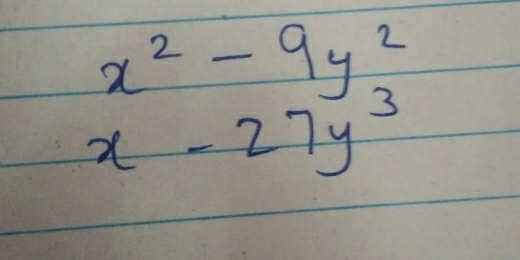 x² - 9y²
x - 27y³